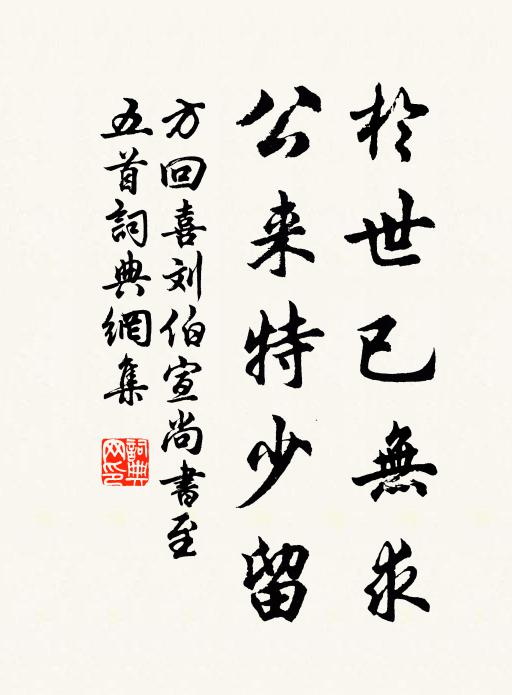 於世已無求
公来特少留
方回喜刘伯宣尚書至
五首詞典網集
詞典網印